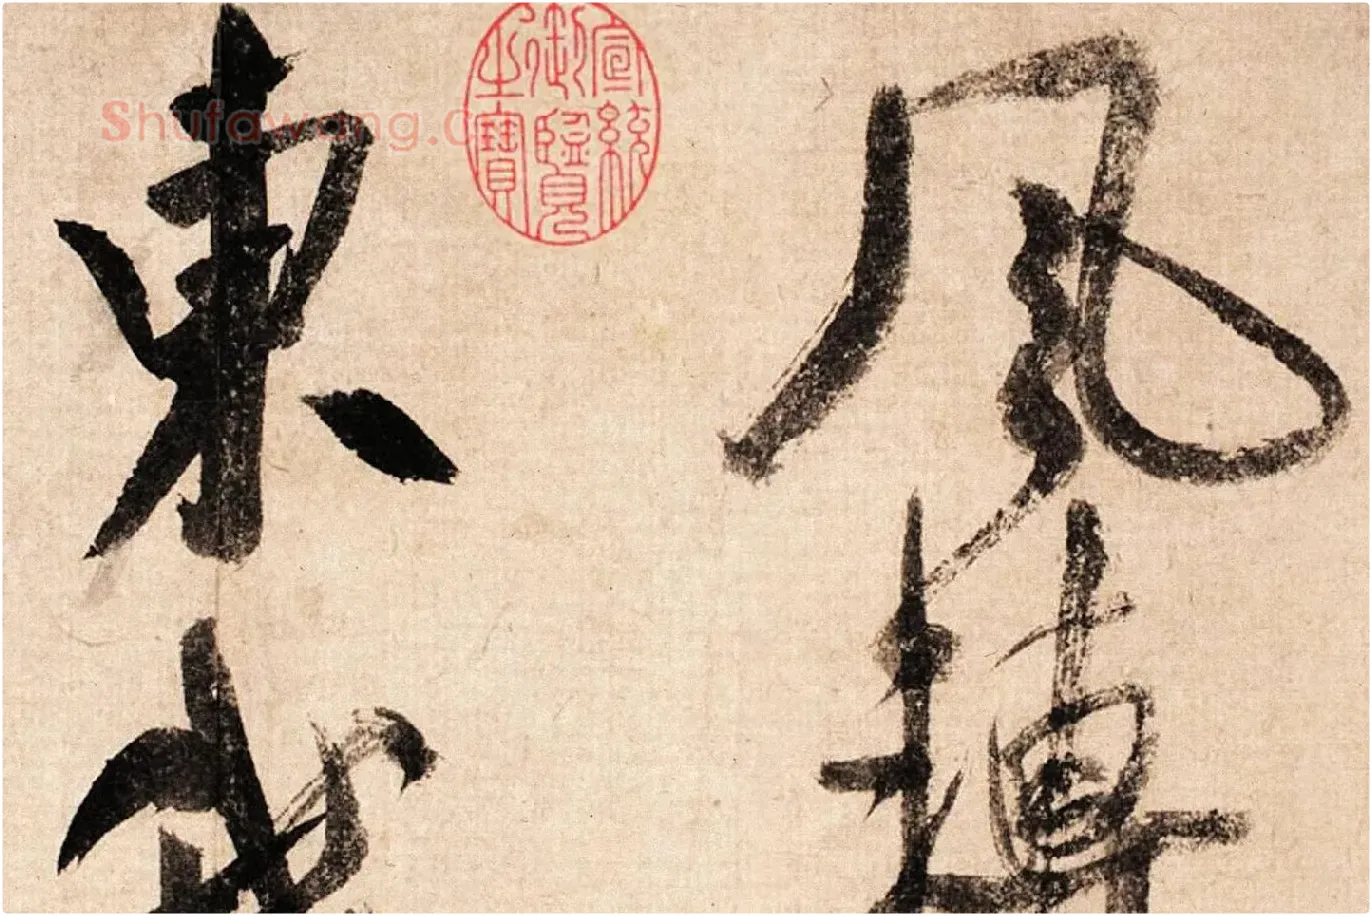 風轉
東我
宣統
御覽
之寶
Shufawang.c